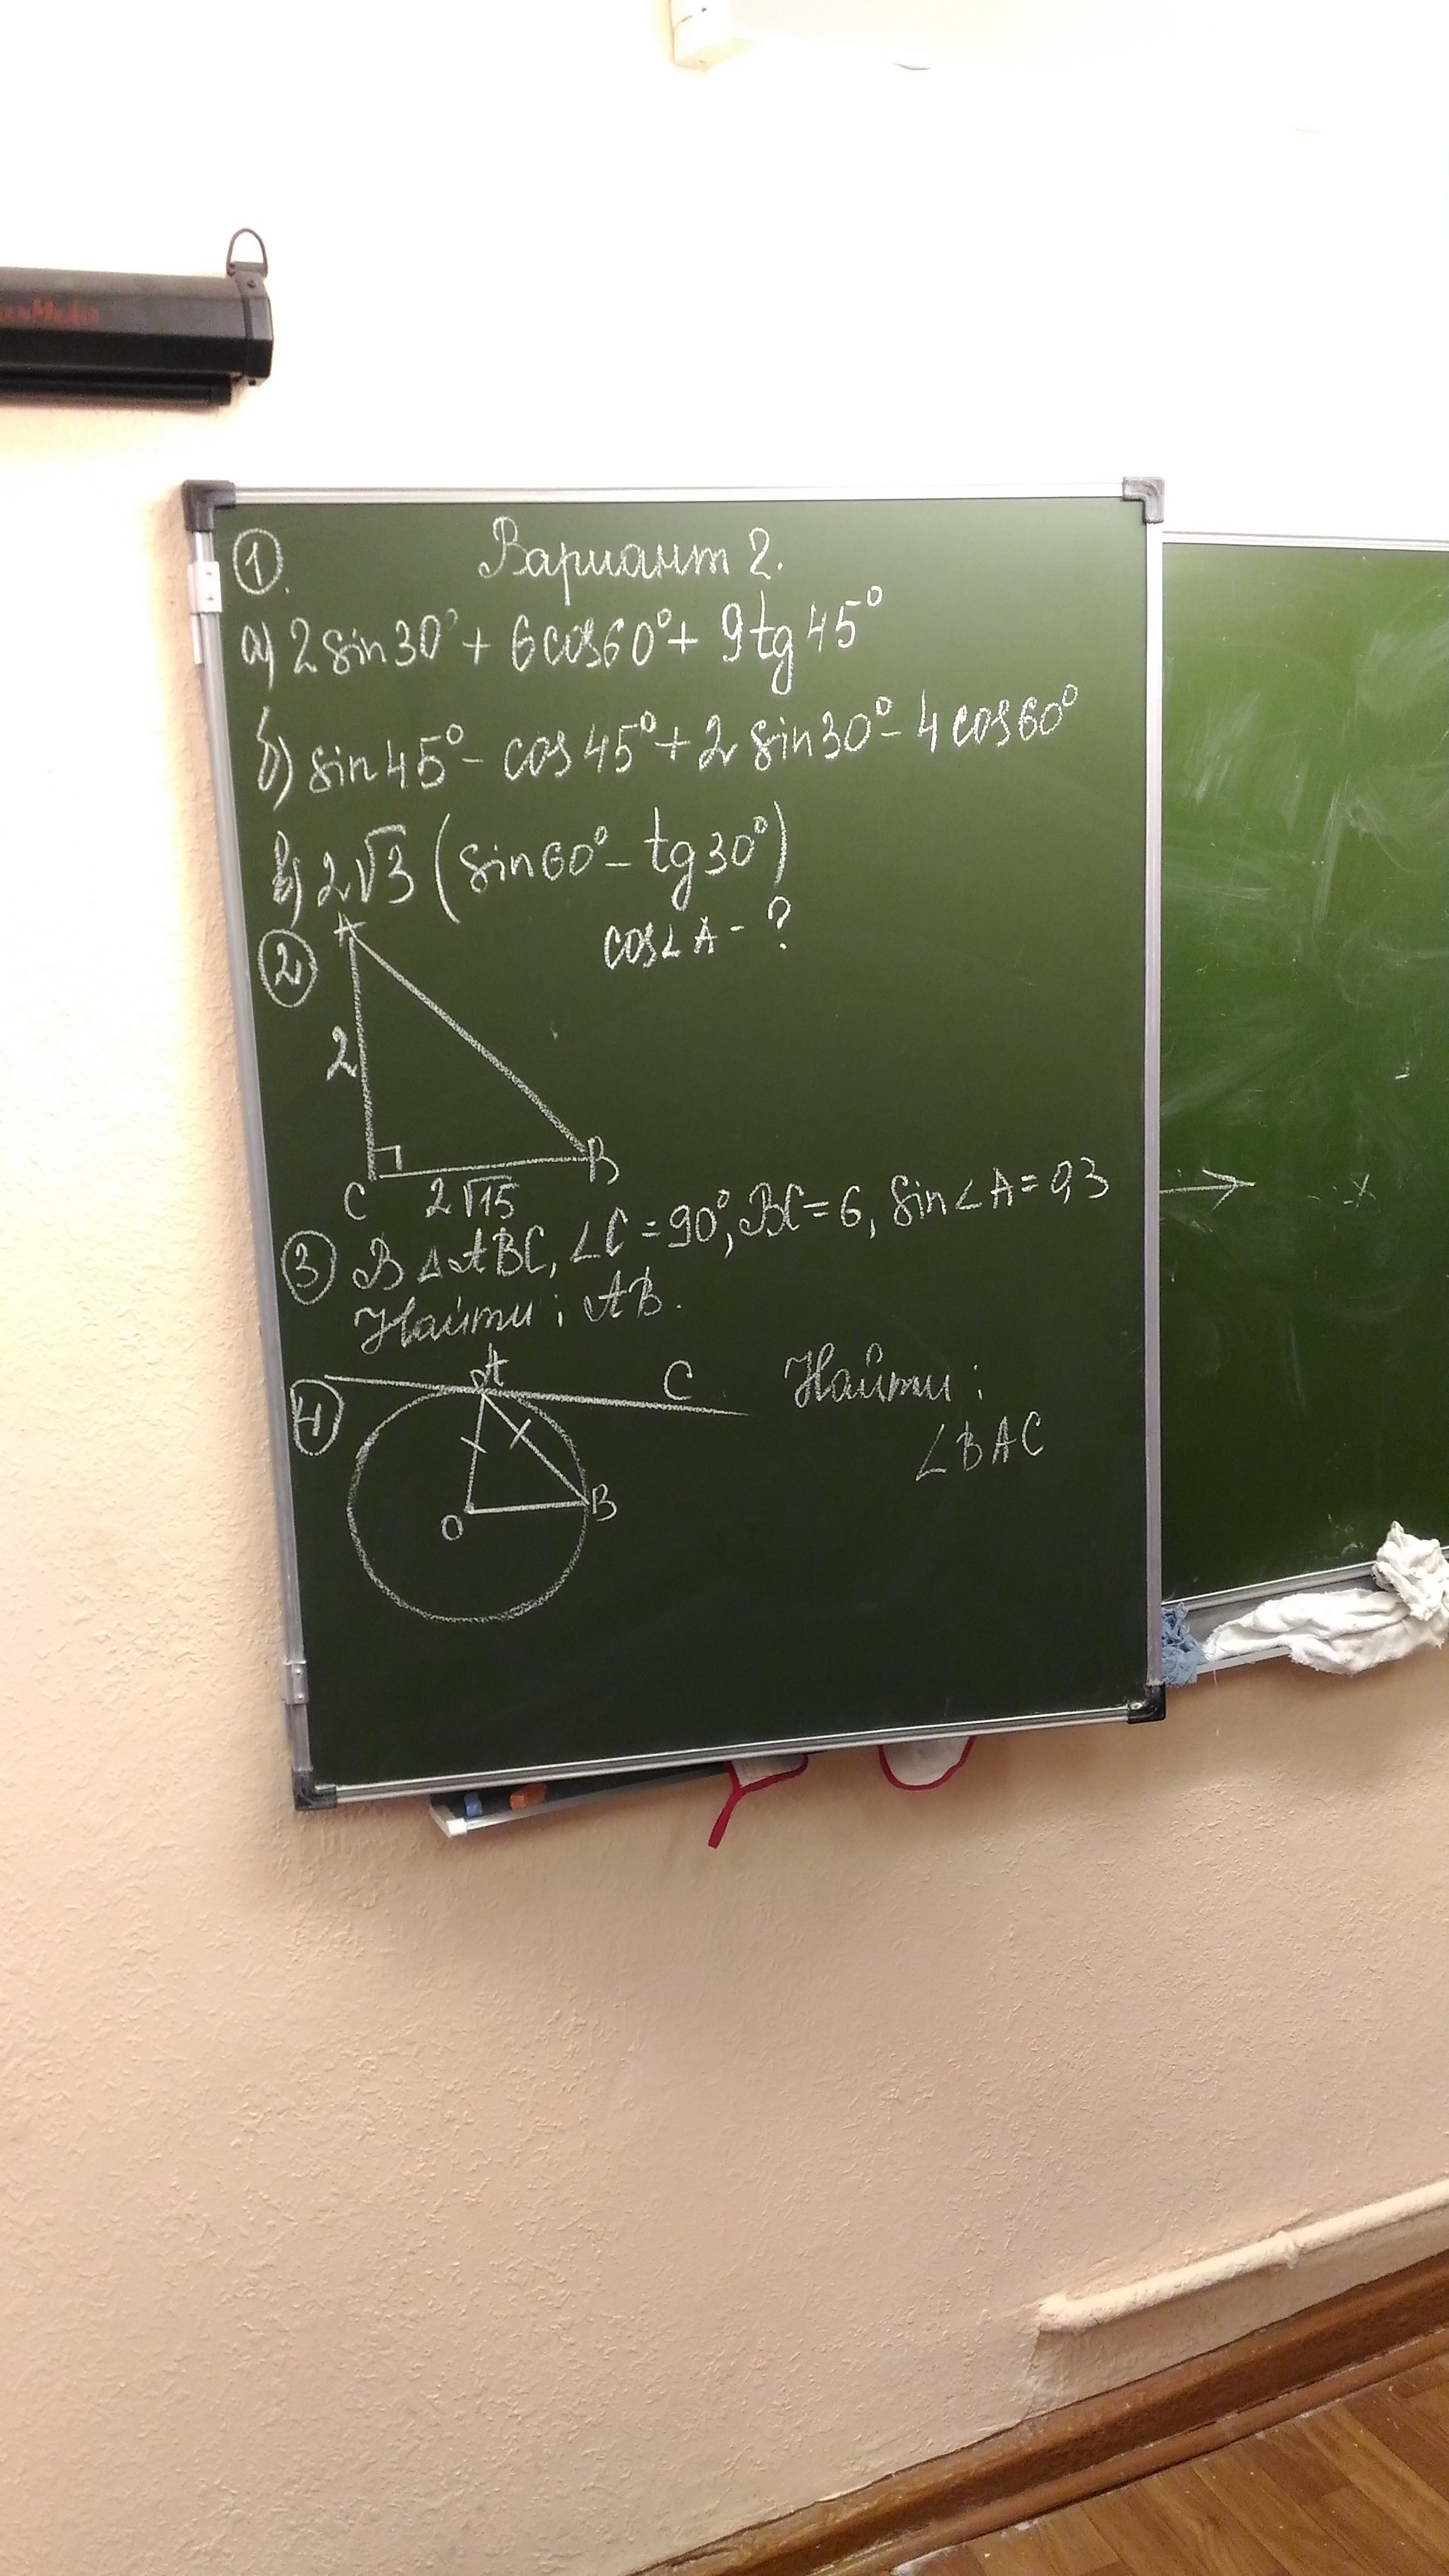 Вариант 2.
1.
а) 2 sin30° + 6cos60° + 9tg45°
б) sin45° - cos45° + 2 sin30° - 4cos60°
в) 2√3 (sin60° - tg30°)
2 A cos∠A - ?
2
B
C 2√15
3 В △ABC, ∠C = 90°, BC = 6, sin∠A = 0,3
Найти: AB.
4 A C Найти:
∠BAC
O B